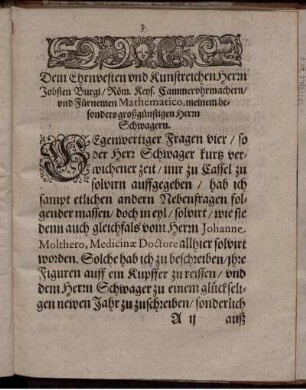 3
Dem Ehrnvesten und Kunstreichen Herrn
Jobsten Burgi/ Röm. Keys. Cammervhrmachern/
vnd Fürnemen Mathematico. meinem be-
sonders großgünstigen Herrn
Schwagern.
GEgenwertiger Fragen vier/ so
der Herr Schwager kurtz ver-
wichener zeit/ mir zu Cassel zu
solvirn auffgegeben/ hab ich
sampt etlichen andern Nebenfragen fol-
gender massen/ doch in eyl/ solvirt/ wie sie
denn auch gleichfals vom Herrn Johanne
Molthero, Medicinæ Doctore allhier solvirt
worden. Solche hab ich zu beschreiben/ jhre
Figuren auff ein Kupffer zu reissen/ vnd
dem Herrn Schwager zu einem glückseli-
gen newen Jahr zu zuschreiben/ sonderlich
A ij auß